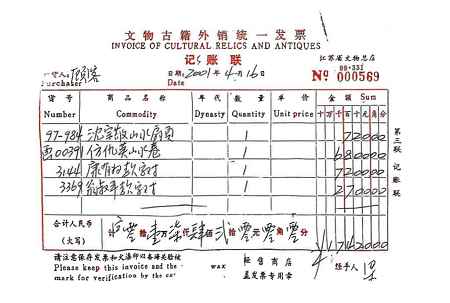 文物古籍外销统一发票
INVOICE OF CULTURAL RELICS AND ANTIQUES
记账联
江苏省文物总店
购货人: 顾客
Purchaker
日期: 2001年4月16日
Date
00·331
№ 000569
货号 商品名称 年代 数量 单价 金额 Sum
Number Commodity Dynasty Quantity Unit price 十万千百十元角分
97-984 沈宗敬山水扇页 1 72000
西00391 仿仇英山水卷 1 680000
3144 康有为款字对 1 720000
3369 翁叔平款字对 1 270000
第三联 记账联
合计人民币
(大写) 零拾壹万柒仟肆佰贰拾零元零角零分 ¥1742000
请注意保存发票和火漆印以备海关检验
Please keep this invoice and the wax
mark for verification by the
经售商店
盖发票专用章
经手人